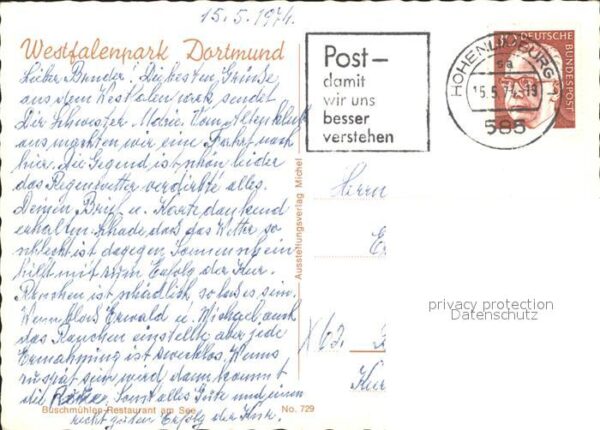 15.5.1974.
Westfalenpark Dortmund
Lieber Bruder! Die besten Grüße
aus dem Westfalenpark sendet
Dir Schwester Marie. Vom Altenklub
aus machten wir eine Fahrt nach
hier. Die Gegend ist schön leider
das Regenwetter verdirbte alles.
Deinen Brief u. Karte dankend
erhalten. Schade, daß das Wetter so
schlecht ist dagegen Sonnenschein
hilft mit zum Erfolg der Kur.
Rauchen ist schädlich, so laß es sein.
Wenn bloß Ewald u. Michael auch
das Rauchen einstellte, aber jede
Ermahnung ist zwecklos. Wenns
zu spät sein wird, dann kommt
die Reue. Sonst alles Gute und einen
recht guten Erfolg der Kur.
Buschmühlen-Restaurant am See
No. 729
Ausstellungsverlag Michel
Post–
damit
wir uns
besser
verstehen
HOHENLIMBURG
sa
15.5.74-18
585
DEUTSCHE
BUNDESPOST
Herrn
X 62.
Kur
privacy protection
Datenschutz